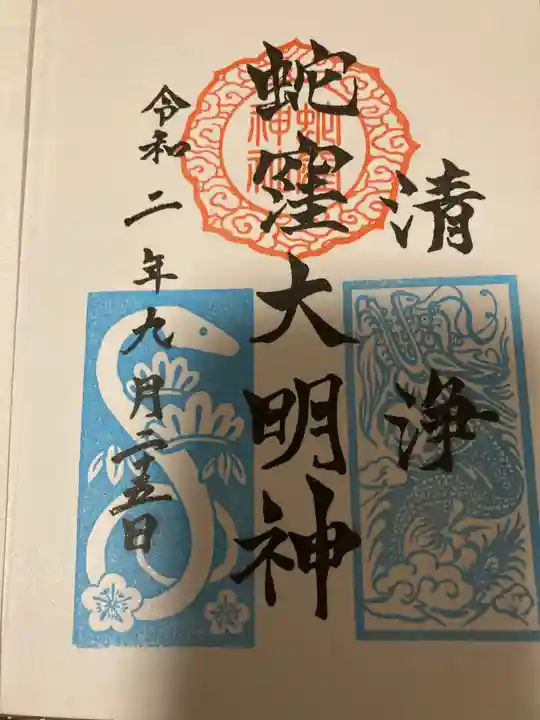 清浄
蛇窪大明神
令和二年九月二十五日